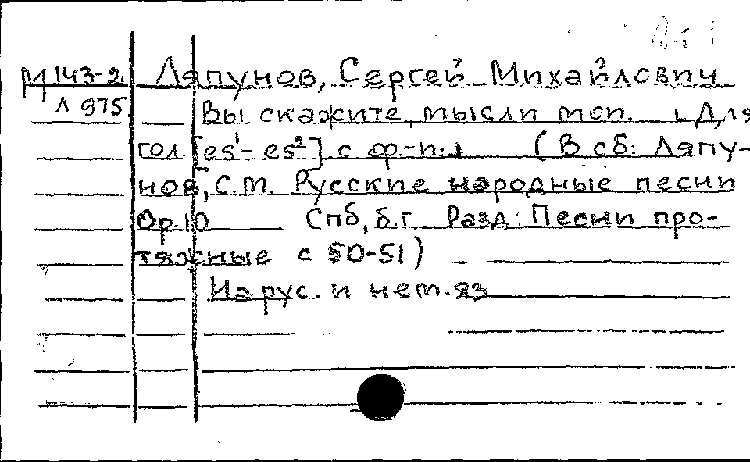 М 143-2 Ляпунов, Сергей Михайлович
Л 975 Вы скажите, мысли мои. [Для
гол [es¹-es²] с ф-п.] (В сб: Ляпу-
нов, С.М. Русские народные песни
Op 10 Спб, б.г. Разд: Песни про-
тяжные с 50-51)
На рус. и нем. яз